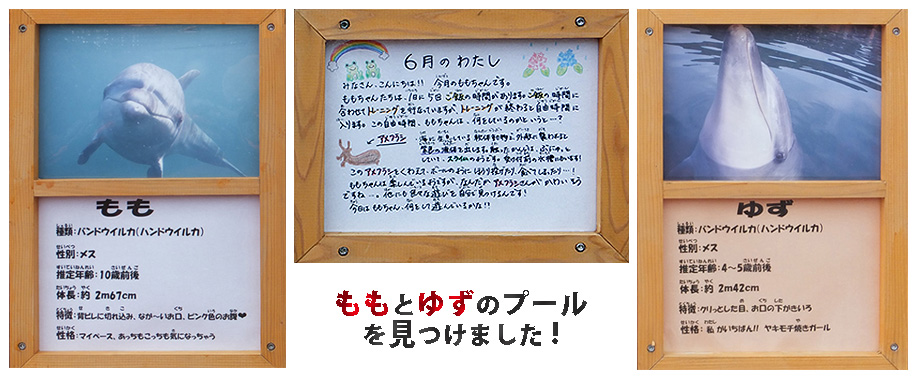 もも
種類:バンドウイルカ(ハンドウイルカ)
せいべつ
性別:メス
すいていねんれい さいぜんご
推定年齢:10歳前後
たいちょう やく
体長:約 2m67cm
とくちょう せ き こ くち
特徴:背ビレに切れ込み、なが〜いお口、ピンク色のお腹❤
せいかく き
性格:マイペース、あっちもこっちも気になっちゃう
6月のわたし
みなさん、こんにちは!! 今月のももちゃんです。
ももちゃんたちは、1日に5回ご飯の時間があります。ご飯の時間に
合わせてトレーニングを行なっていますが、トレーニングが終わると自由時間に
入ります。この自由時間、ももちゃんは、何をしているのかというと…?
アメフラシ
海に生息している軟体動物で、外敵に襲われると
紫色の液体を出します。触ったかんじは、ぷにぷに
していて、スライムのようです。
このアメフラシをくわえて、ボールのようにほうり投げたり、食べてしまったり…!
ももちゃんは楽しんでいるようですが、なんだかアメフラシさんが、かわいそう
ですね…。他にも色々な遊びを自分で見つけるんです!
今日はももちゃん、何をして遊んでいるかな!!
ももとゆずのプール
を見つけました!
ゆず
しゅるい
種類:バンドウイルカ(ハンドウイルカ)
せいべつ
性別:メス
すいていねんれい さいぜんご
推定年齢:4〜5歳前後
たいちょう やく
体長:約 2m42cm
とくちょう め くち した
特徴:クリっとした目、お口の下がきいろ
せいかく わたし や
性格:私がいちばん!! ヤキモチ焼きガール